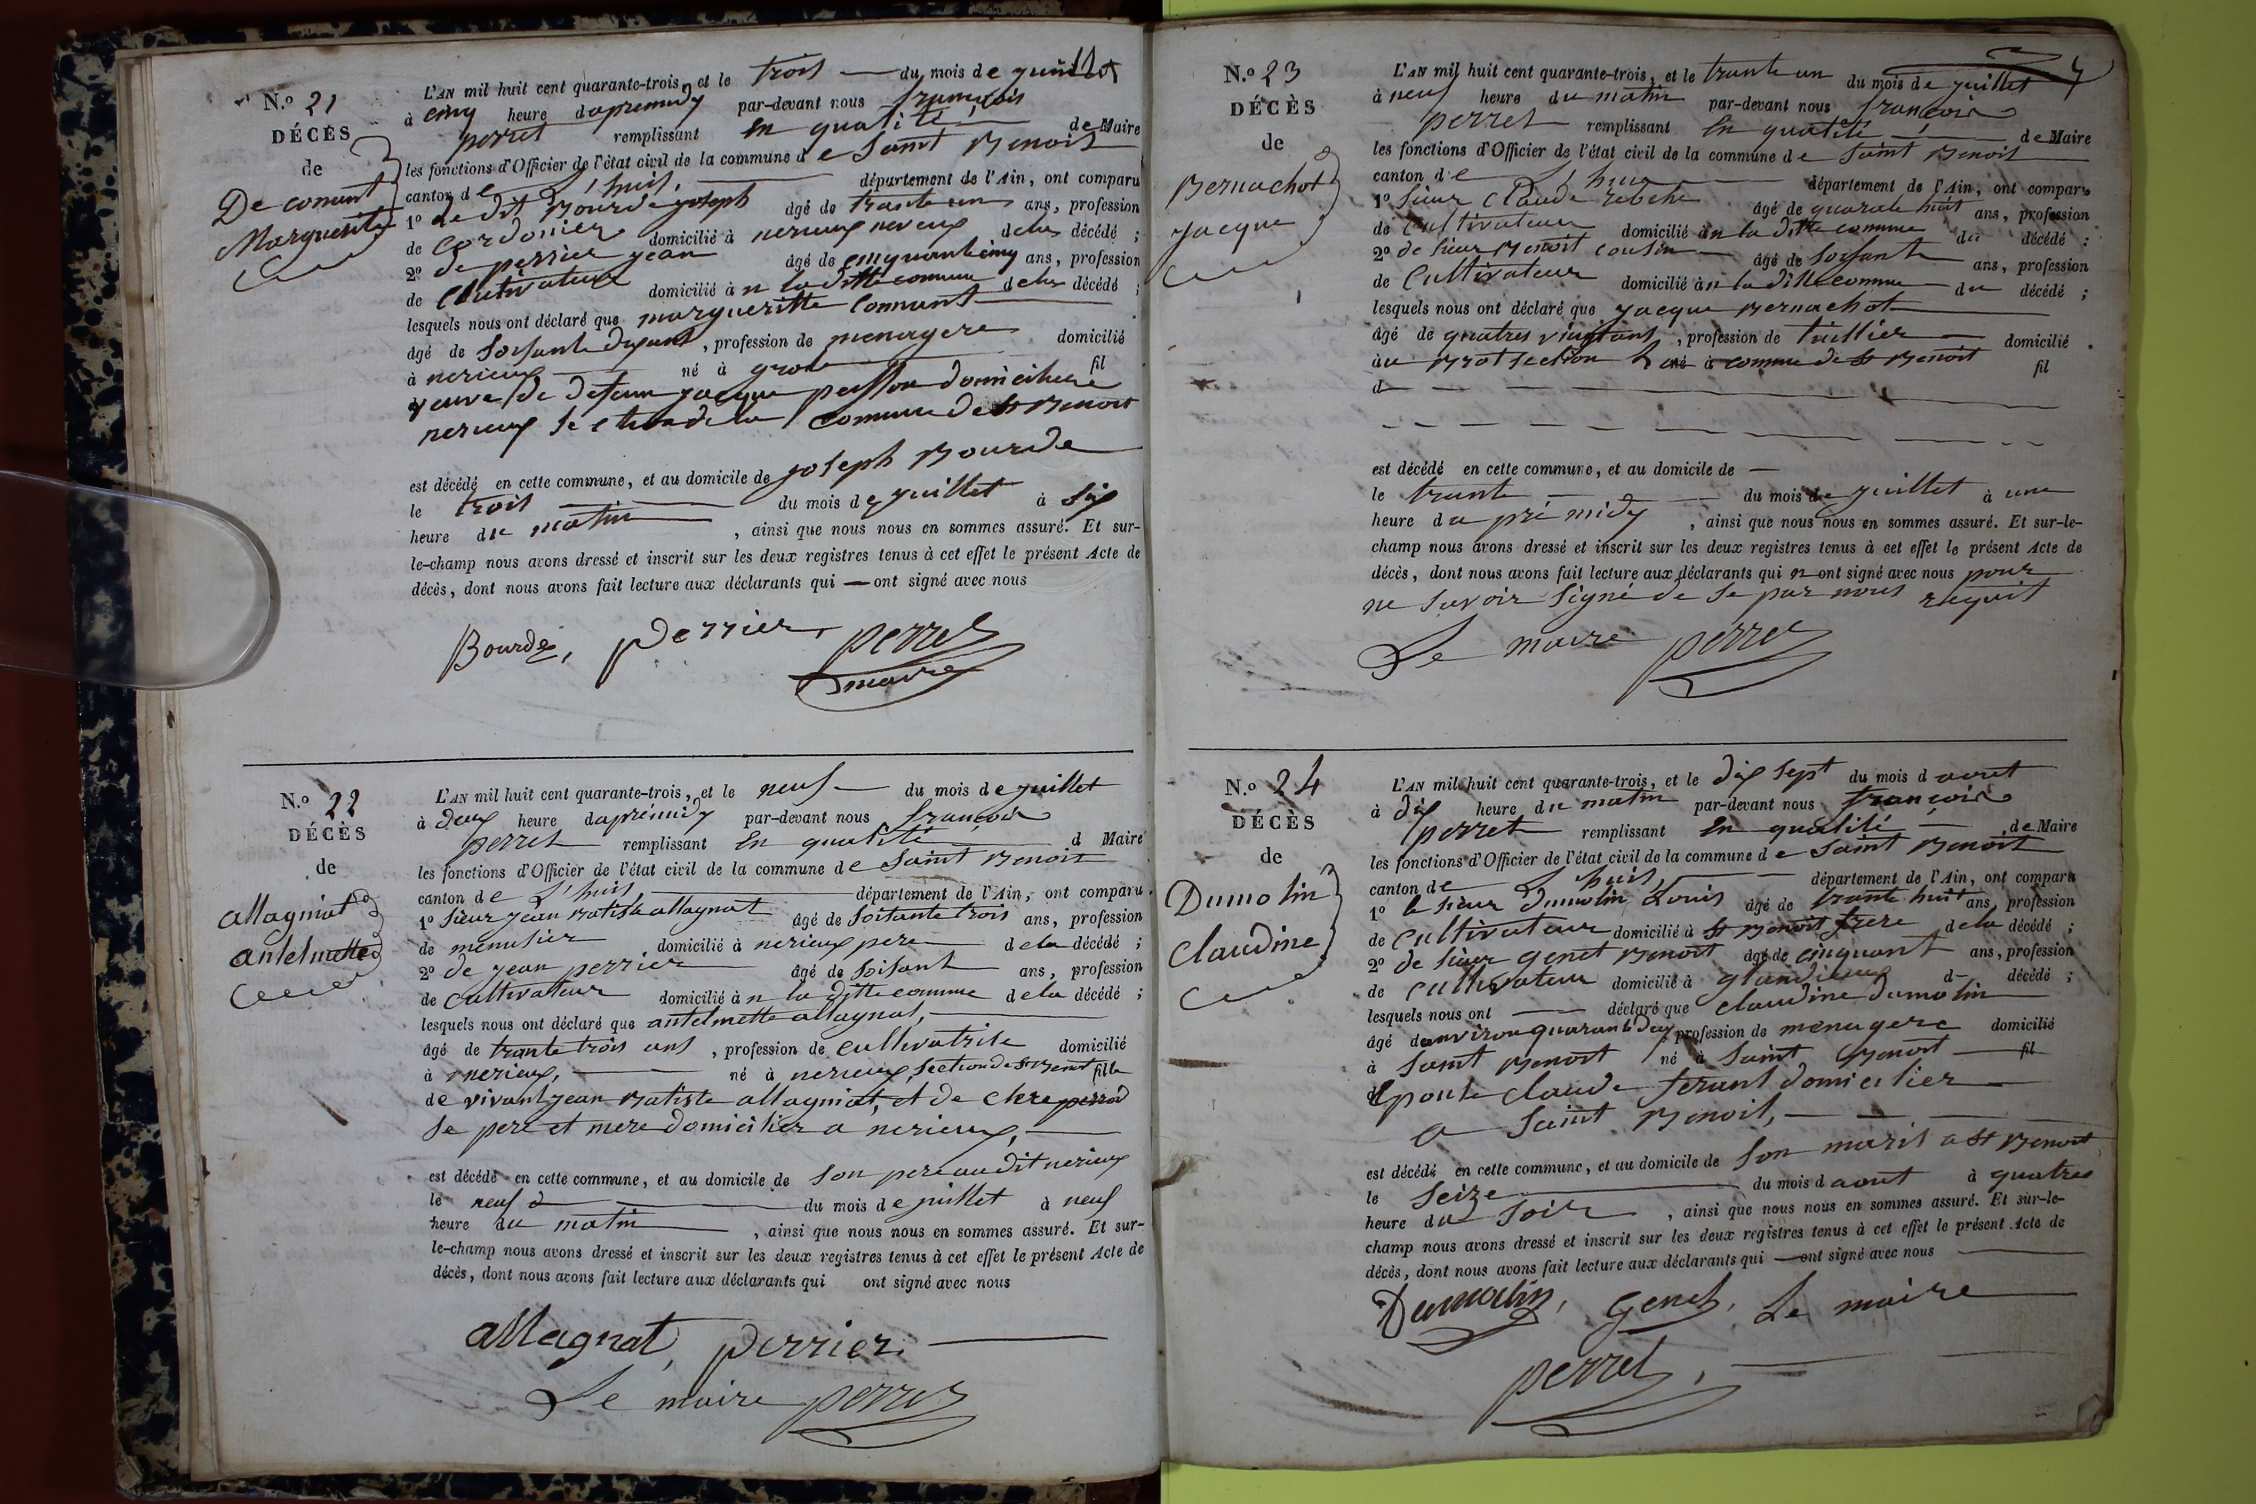 N.o 21
DÉCÈS
de
De conant
Marguerite
L'AN mil huit cent quarante-trois, et le trois du mois de juillet
à cinq heure dapremidy par-devant nous françois
perret remplissant en qualité de Maire
les fonctions d'Officier de l'état civil de la commune de Saint Benoit
canton de L'huis, département de l'Ain, ont comparu
1o le dit Bourde joseph âgé de trante un ans, profession
de Cordonier domicilié à nerieux neveux dela décédé ;
2o de perrier jean âgé de cinquante cinq ans, profession
de Cultivateur domicilié àn la ditte commune dela décédé ;
lesquels nous ont déclaré que margueritte Connant
âgé de Soisante dix ans, profession de menagere domicilié
à nerieux né à grole fil
veuve de defunt jacque domicilier
nerieux section de la commune de St Benoit
est décédé en cette commune, et au domicile de joseph Bourde
le trois du mois de juillet à Six
heure du matin, ainsi que nous nous en sommes assuré. Et sur-
le-champ nous avons dressé et inscrit sur les deux registres tenus à cet effet le présent Acte de
décès, dont nous avons fait lecture aux déclarants qui — ont signé avec nous
Bourde, perrier, perret
maire
N.o 22
DÉCÈS
de
allagniat
antelmette
L'AN mil huit cent quarante-trois, et le neuf du mois de juillet
à deux heure daprémidy par-devant nous françois
perret remplissant en qualité d Maire
les fonctions d'Officier de l'état civil de la commune de Saint Benoit
canton de L'huis, département de l'Ain, ont comparu
1o Sieur jean Batiste allagnat âgé de Soisante trois ans, profession
de menusier domicilié à nerieux pere dela décédé ;
2o de jean perrier âgé de Soisant ans, profession
de Cultivateur domicilié àn la ditte commune dela décédé ;
lesquels nous ont déclaré que antelmette allagnat,
âgé de trante trois ans, profession de cultivatrise domicilié
à nerieux, né à nerieux, section de St Benoit fille
de vivant jean Batiste allagniat, et de clere perrod
Se pere et mere domicilier a nerieux,
est décédé en cette commune, et au domicile de Son pere au dit nerieux
le neuf d du mois de juillet à neuf
heure du matin, ainsi que nous nous en sommes assuré. Et sur-
le-champ nous avons dressé et inscrit sur les deux registres tenus à cet effet le présent Acte de
décès, dont nous avons fait lecture aux déclarants qui ont signé avec nous
allagnat, perrier,
Le maire perret
N.o 23
DÉCÈS
de
Bernachot
jacque
L'AN mil huit cent quarante-trois, et le trante un du mois de juillet
à neuf heure du matin par-devant nous françois
perret remplissant en qualité de Maire
les fonctions d'Officier de l'état civil de la commune de Saint Benoit
canton de L'huis département de l'Ain, ont comparu
1o Sieur Claude rebche âgé de quarate huit ans, profession
de Cultivateur domicilié àn la ditte commune du décédé ;
2o de Sieur Benoit cousin âgé de Soisante ans, profession
de Cultivateur domicilié àn la ditte commune du décédé ;
lesquels nous ont déclaré que jacque Bernachot
âgé de quatres vingt ans, profession de tuillier domicilié
àu Brot section né à commune de St Benoit fil
d
est décédé en cette commune, et au domicile de —
le trante du mois de juillet à une
heure da prémidy, ainsi que nous nous en sommes assuré. Et sur-le-
champ nous avons dressé et inscrit sur les deux registres tenus à cet effet le présent Acte de
décès, dont nous avons fait lecture aux déclarants qui n ont signé avec nous pour
ne Savoir Signé de Se par nous requit
Le maire perret
N.o 24
DÉCÈS
de
Dumolin
Claudine
L'AN mil huit cent quarante-trois, et le dix Sept du mois d aout
à dix heure du matin par-devant nous françois
perret remplissant en qualité de Maire
les fonctions d'Officier de l'état civil de la commune de Saint Benoit
canton de L'huis, département de l'Ain, ont comparu
1o le Sieur Dumolin Louis âgé de trante huit ans, profession
de Cultivateur domicilié à St Benoit frere dela décédé ;
2o de Sieur genet Benoit âgé de cinquant ans, profession
de Cultivateur domicilié à glandieux d décédé ;
lesquels nous ont déclaré que Claudine Dumolin
âgé d anviron quarante deux, profession de menagere domicilié
à Saint Benoit né à Saint Benoit fil
Epouse Claude ferant domicilier
a Saint Benoit,
est décédé en cette commune, et au domicile de Son marit a St Benoit
le Seize du mois d aout à quatres
heure du Soir, ainsi que nous nous en sommes assuré. Et sur-le-
champ nous avons dressé et inscrit sur les deux registres tenus à cet effet le présent Acte de
décès, dont nous avons fait lecture aux déclarants qui — ont signé avec nous
Dumolin, genet, Le maire
perret,